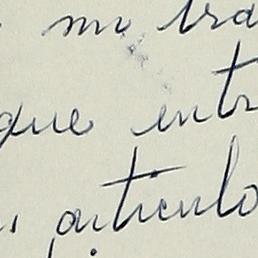 mi tra
que entr
articulo